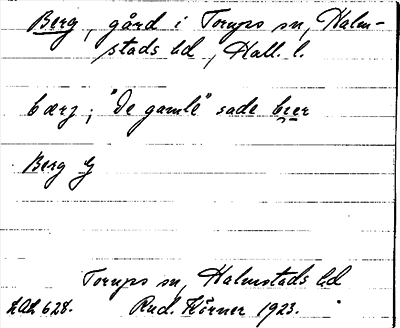 Berg, gård i Torups sn, Halm-
stads hd, Hall. l.
bærj; "De gamle" sade
Berg G
Torups sn, Halmstads hd
628. Rud. Körner 1923.